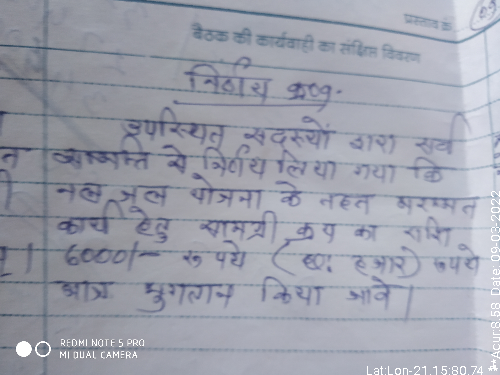 प्रस्ताव क्र.
बैठक की कार्यवाही का संक्षिप्त विवरण
निर्णय क्र09.
उपस्थित सदस्यों द्वारा सर्व
सम्मति से निर्णय लिया गया कि
नल जल योजना के तहत मरम्मत
कार्य हेतु सामग्री क्रय का राशि
6000/- रुपये (छः हजार) रुपये
मात्र भुगतान किया जावे।
REDMI NOTE 5 PRO
MI DUAL CAMERA
Lat:Lon-21.15:80.74
**Acur:8.58 Date: 09-03-2022